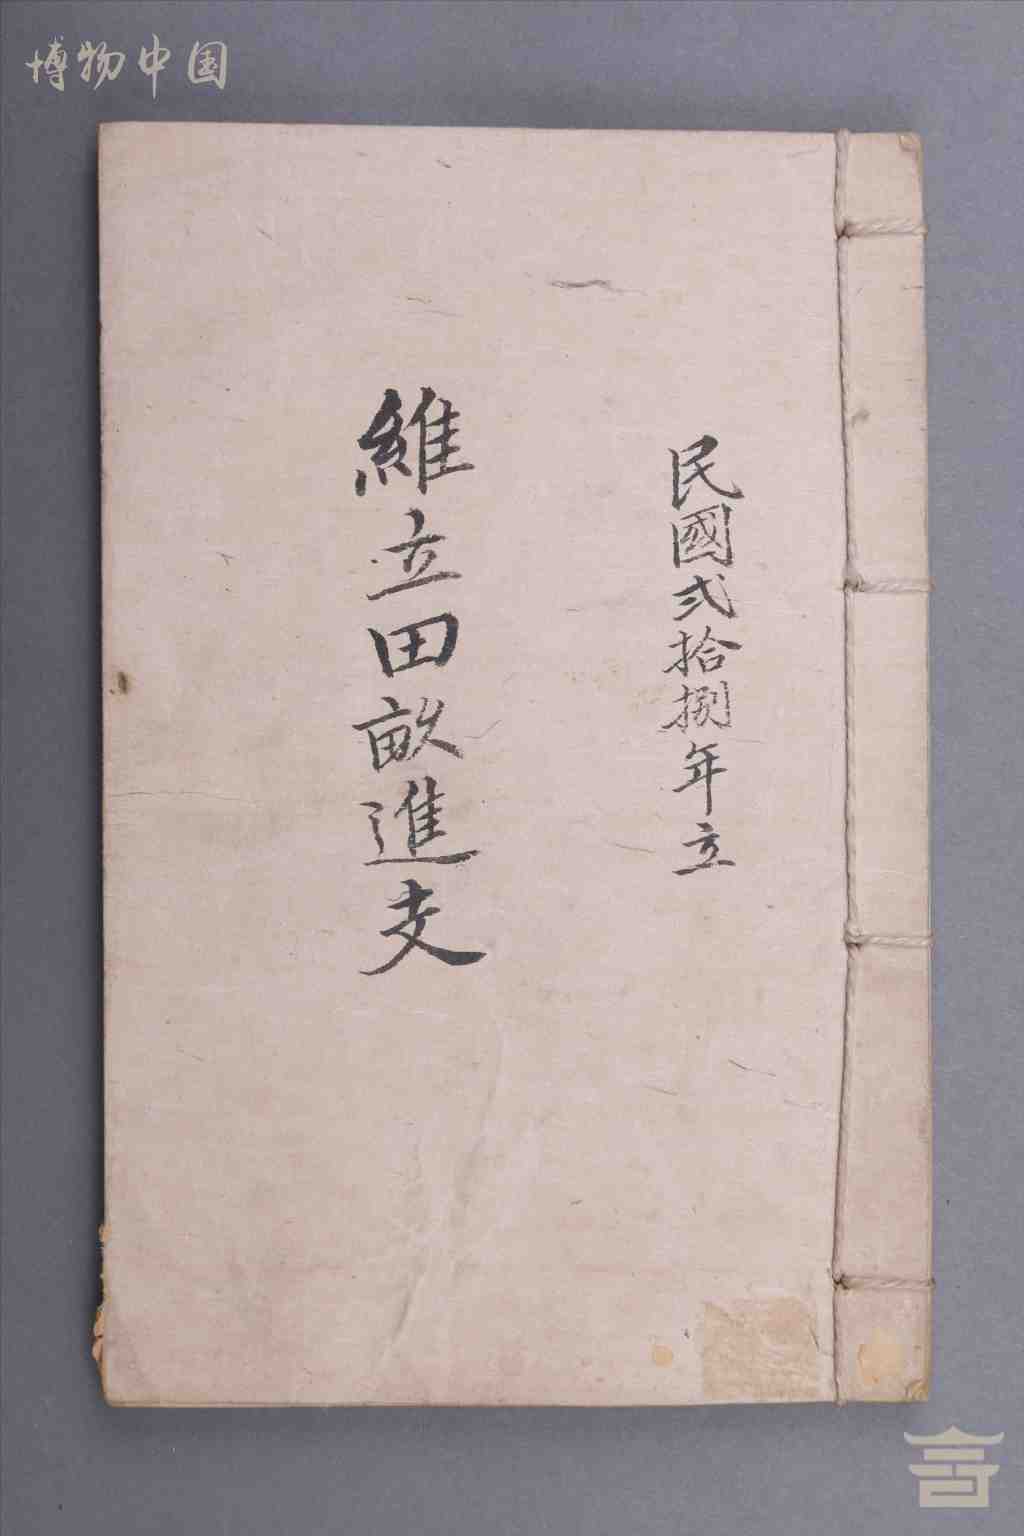 博物中国
民國弍拾捌年立
維立田畝進支